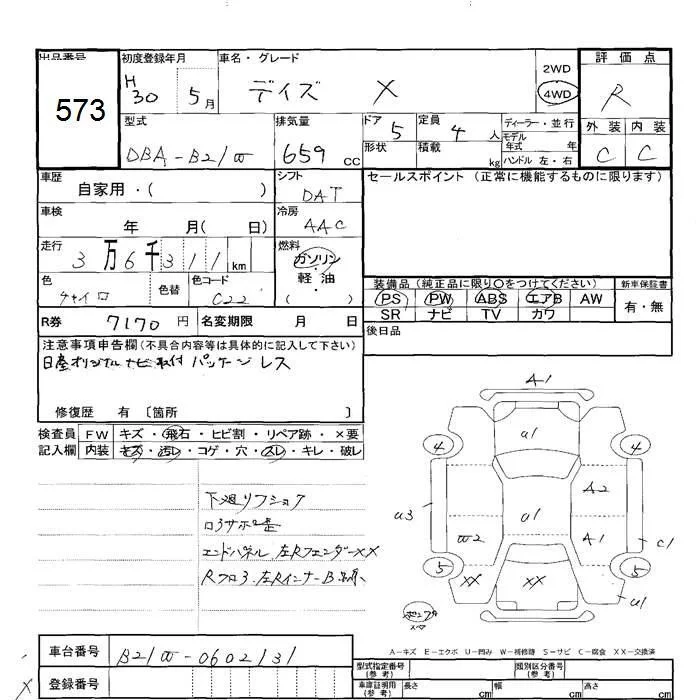 出品番号 初度登録年月 車名・グレード 評価点
573
H30 5月 デイズ X 2WD 4WD R
型式 排気量 ドア 5 定員 4人 ディーラー・並行 外装 内装
DBA-B21W 659cc 形状 積載 kg モデル年式 年 C C
ハンドル 左・右
車歴 自家用・( ) シフト DAT セールスポイント (正常に機能するものに限ります)
車検 年 月( 日) 冷房 AAC
走行 3万6千311km 燃料 ガソリン・軽油( )
色 チャイロ 色替 色コード C22
装備品(純正品に限り○をつけてください) 新車保証書
PS PW ABS エアB AW 有・無
SR ナビ TV カワ
R券 7170円 名変期限 月 日 後日品
注意事項申告欄(不具合内容等は具体的に記入して下さい)
日産オリジナルナビ取付パッケージレス
修復歴 有 〔箇所 〕
検査員 FW キズ・飛石・ヒビ割・リペア跡・×要
記入欄 内装 キズ・汚レ・コゲ・穴・スレ・キレ・破レ
下廻リフショク
エンドパネル.左RフェンダーXX
A1
4 u1 4
A2
u3 u1
W2 A1 c1
5 XX XX 5
u1
A-キズ E-エクボ U-凹み W-補修跡 S-サビ C-腐食 XX-交換済
車台番号 B21W-0602131
登録番号
型式指定番号(参考) 類別区分番号(参考)
車庫証明用(参考) 長さ cm 幅 cm 高さ cm